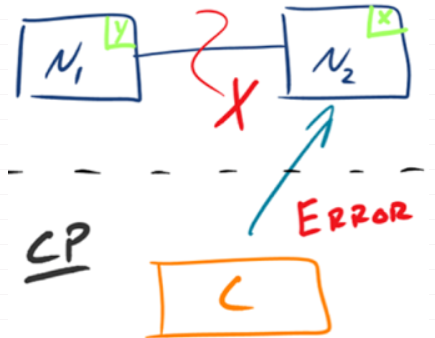 N1 y
N2 x
X
ERROR
CP
C